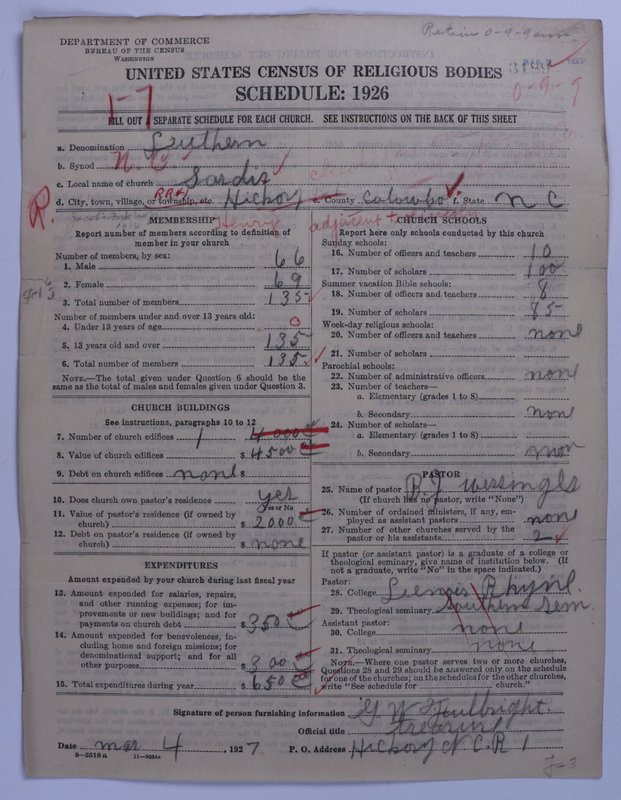 Retin 0-9-9
DEPARTMENT OF COMMERCE
BUREAU OF THE CENSUS
WASHINGTON
UNITED STATES CENSUS OF RELIGIOUS BODIES
SCHEDULE: 1926
0-9-9
1-7
FILL OUT A SEPARATE SCHEDULE FOR EACH CHURCH. SEE INSTRUCTIONS ON THE BACK OF THIS SHEET
a. Denomination Luthern
b. Synod N. C.
c. Local name of church Sardis
R. d. City, town, village, or township, etc. RR#1 Hickory e. County Catawba f. State N C
Henry adjacent +
MEMBERSHIP
Report number of members according to definition of member in your church
Number of members, by sex:
1. Male 66
2. Female 69
3. Total number of members 135
Number of members under and over 13 years old:
4. Under 13 years of age 0
5. 13 years old and over 135
6. Total number of members 135
NOTE.—The total given under Question 6 should be the
same as the total of males and females given under Question 3.
CHURCH BUILDINGS
See instructions, paragraphs 10 to 12
7. Number of church edifices 1 4000
8. Value of church edifices $ 4500
9. Debt on church edifices none $
10. Does church own pastor's residence yes
Yes or No
11. Value of pastor's residence (if owned by
church) $ 2000
12. Debt on pastor's residence (if owned by
church) $ none
EXPENDITURES
Amount expended by your church during last fiscal year
13. Amount expended for salaries, repairs,
and other running expenses; for im-
provements or new buildings; and for
payments on church debt $ 350
14. Amount expended for benevolences, in-
cluding home and foreign missions; for
denominational support; and for all
other purposes $ 300
15. Total expenditures during year $ 650
CHURCH SCHOOLS
Report here only schools conducted by this church
Sunday schools:
16. Number of officers and teachers 10
17. Number of scholars 100
Summer vacation Bible schools:
18. Number of officers and teachers 8
19. Number of scholars 85
Week-day religious schools:
20. Number of officers and teachers none
21. Number of scholars
Parochial schools:
22. Number of administrative officers none
23. Number of teachers—
a. Elementary (grades 1 to 8)
b. Secondary non
24. Number of scholars—
a. Elementary (grades 1 to 8)
b. Secondary non
PASTOR
25. Name of pastor
(If church has no pastor, write "None")
26. Number of ordained ministers, if any, em-
ployed as assistant pastors none
27. Number of other churches served by the
pastor or his assistants 2
If pastor (or assistant pastor) is a graduate of a college or
theological seminary, give name of institution below. (If
not a graduate, write "No" in the space indicated.)
Pastor:
28. College Lenoir Rhyne
29. Theological seminary Southern Sem.
Assistant pastor:
30. College none
31. Theological seminary none
NOTE.—Where one pastor serves two or more churches,
Questions 28 and 29 should be answered only on the schedule
for one of the churches; on the schedules for the other churches,
write "See schedule for church."
Signature of person furnishing information G W Fulbright.
Official title
Date mar 4, 1927. P. O. Address Hickory N. C. R 1
8-5518a 11-9094a
J-3